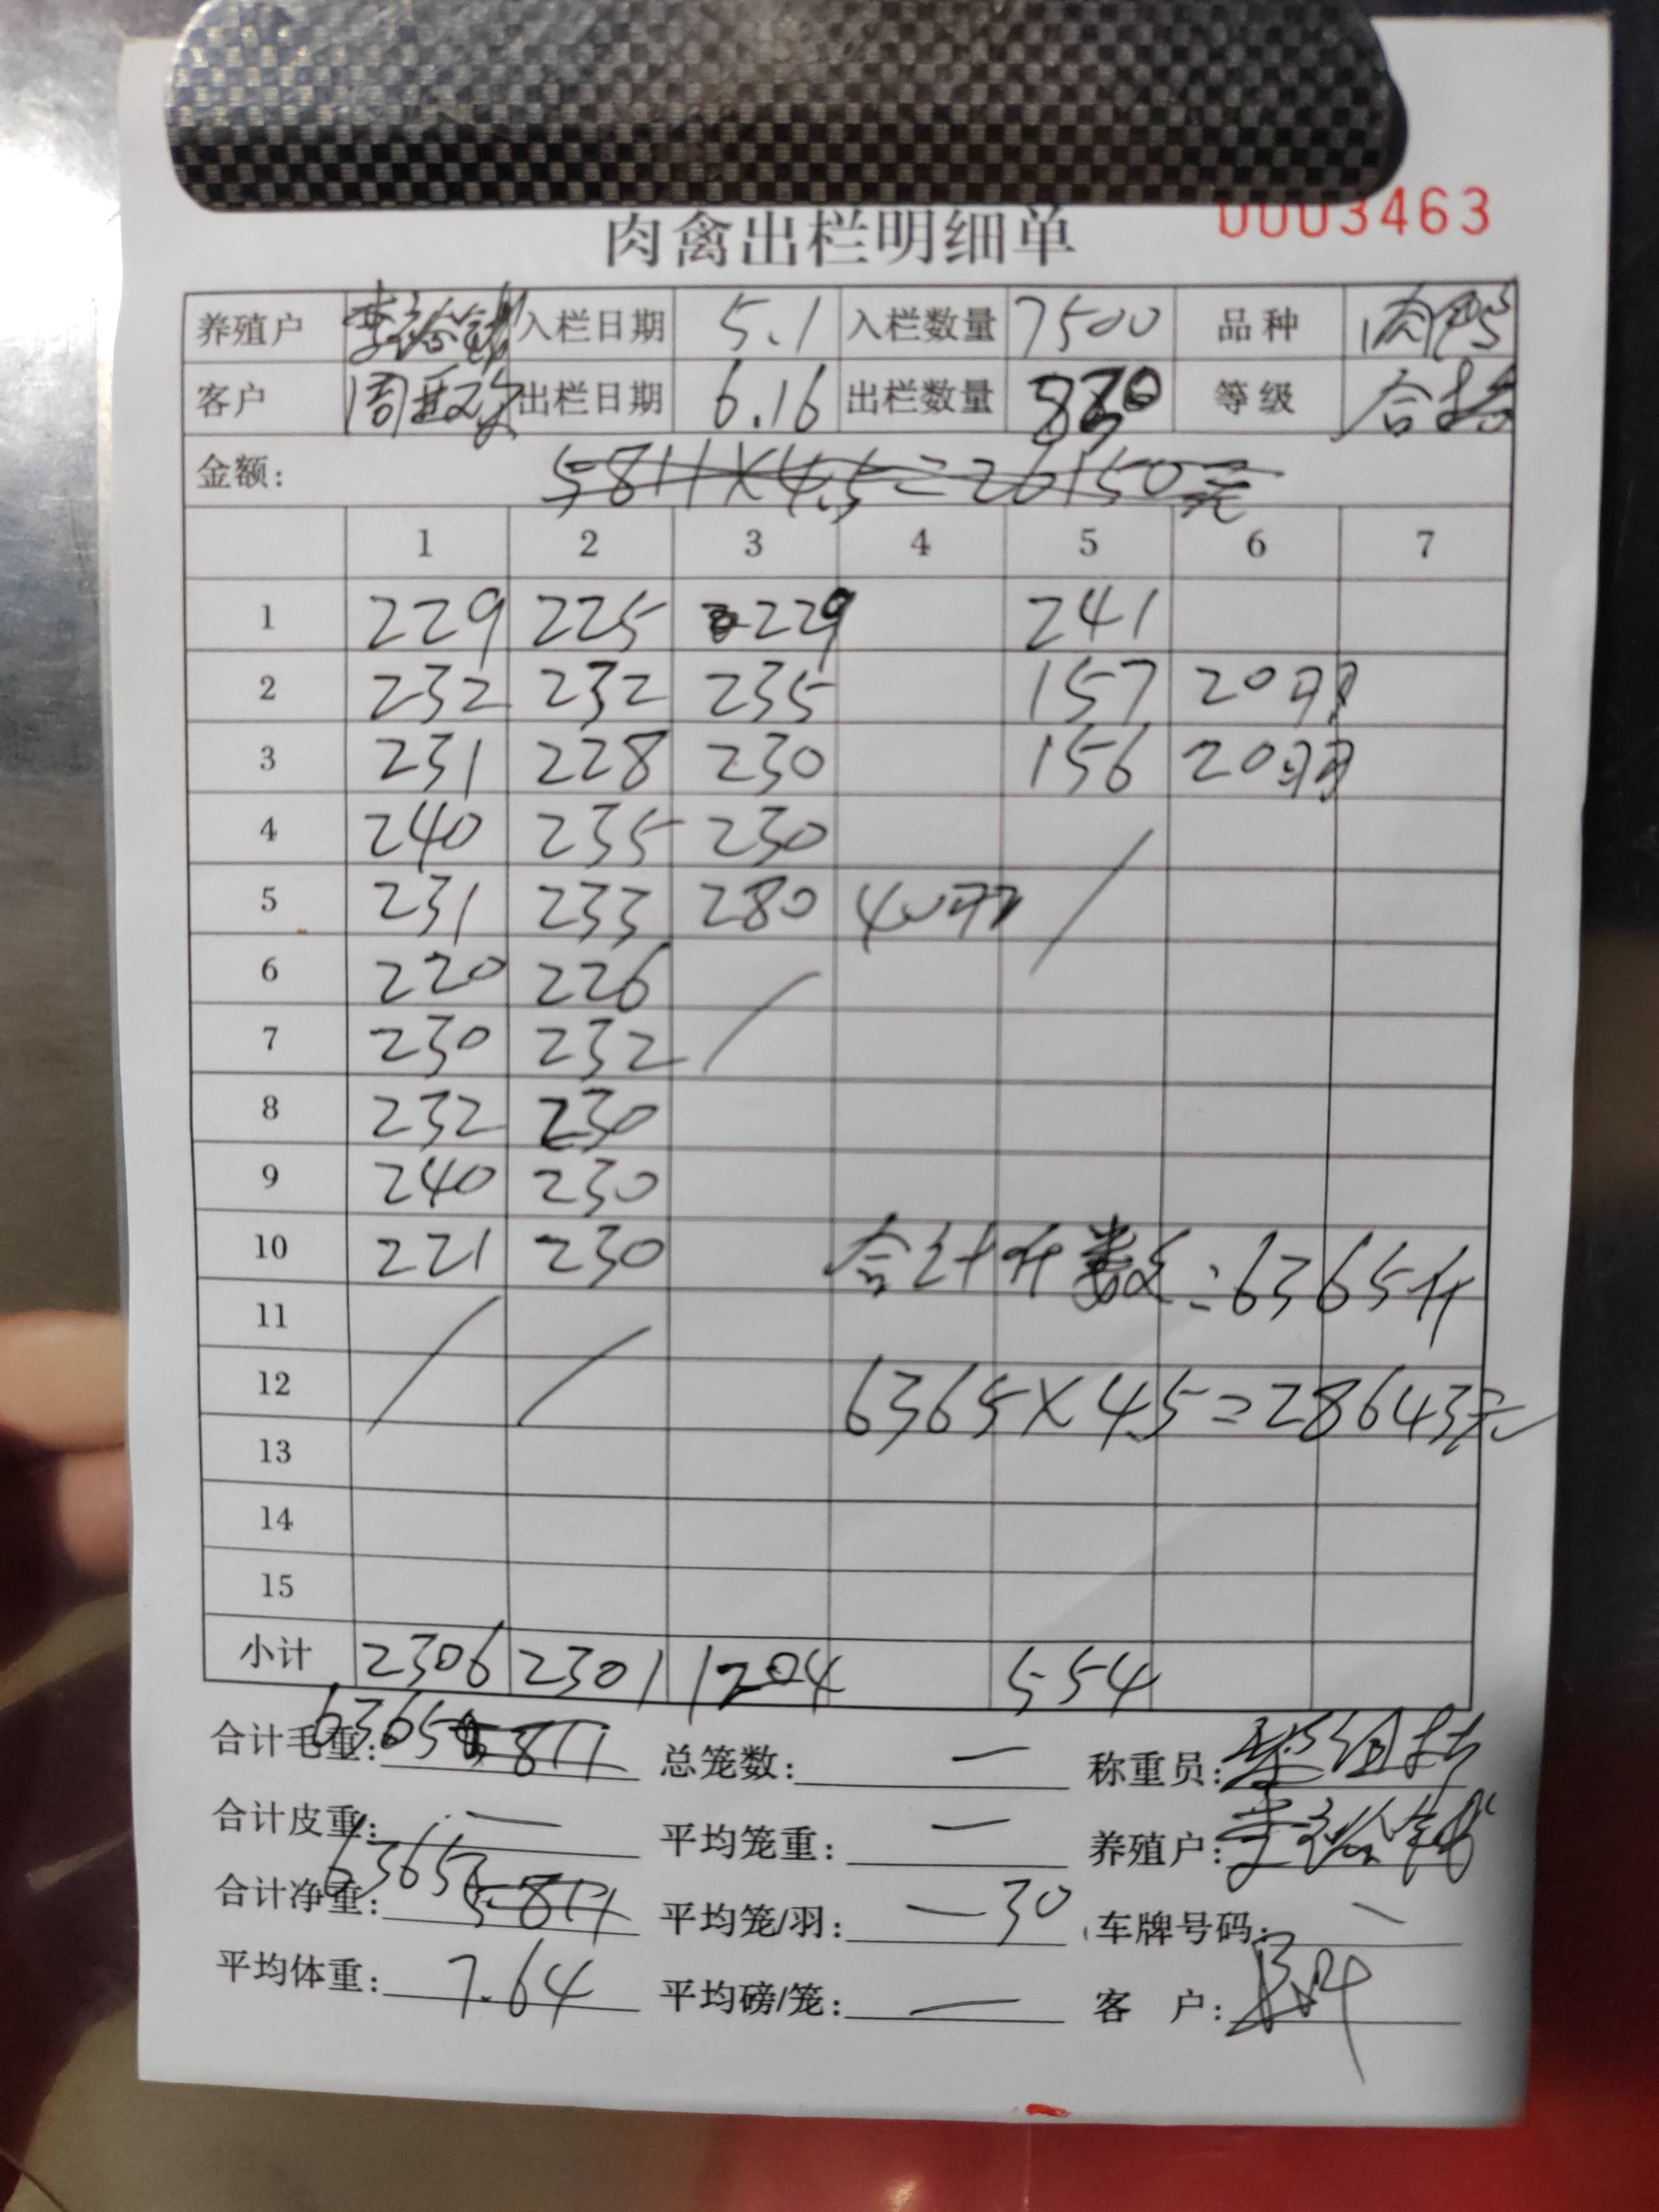 肉禽出栏明细单 0003463
养殖户 李裕锹 入栏日期 5.1 入栏数量 7500 品种 肉鸭
客户 出栏日期 6.16 出栏数量 830 等级 合格
金额: 5811×4.5=26150元
1 2 3 4 5 6 7
1 229 225 229 241
2 232 232 235 157 20羽
3 231 228 230 156 20羽
4 240 235 230
5 231 233 280 40羽
6 220 226
7 230 232
8 232 230
9 240 230
10 221 230 合计斤数:6365斤
11
12 6365×4.5=28643元
13
14
15
小计 2306 2301 1204 554
合计毛重: 6365 5811 总笼数: — 称重员:
合计皮重: — 平均笼重: — 养殖户:
合计净重: 6365 5811 平均笼/羽: —30 车牌号码: —
平均体重: 7.64 平均磅/笼: — 客 户: